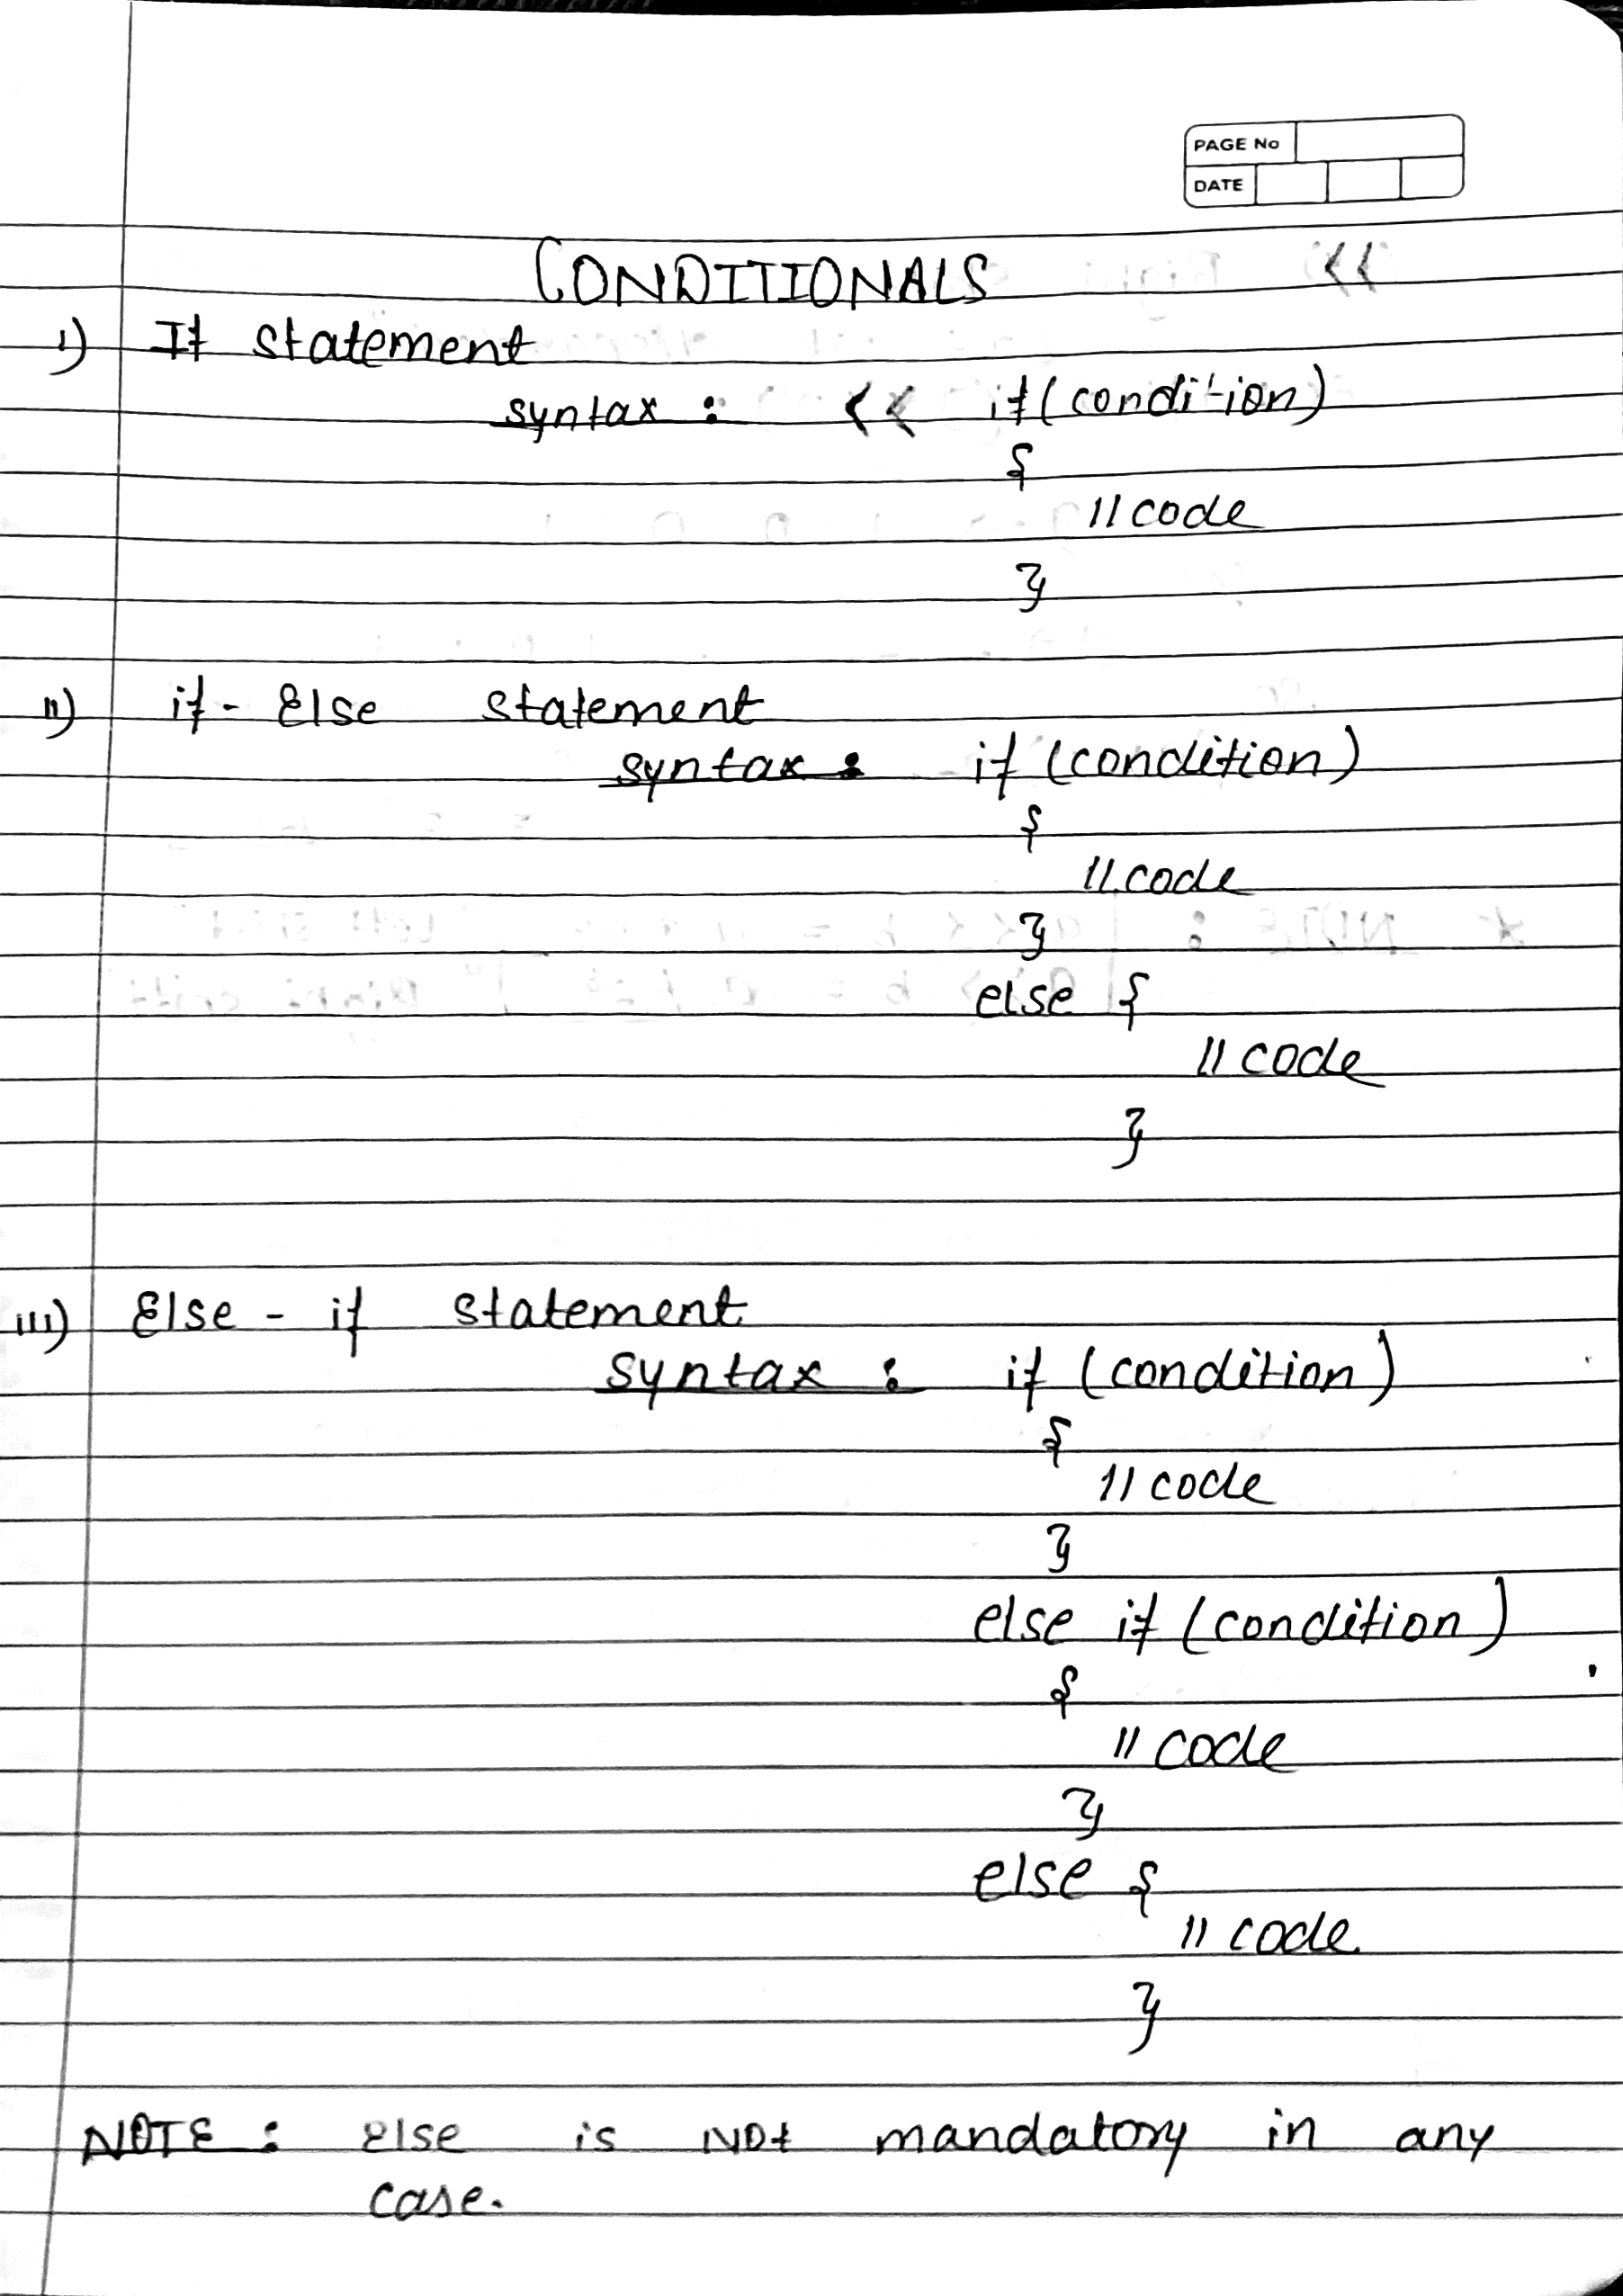 PAGE No
DATE
CONDITIONALS
i) If statement
syntax : << if (condition)
{
//code
}
ii) if - Else statement
syntax : if (condition)
{
//code
}
else {
// code
}
iii) Else - if statement
syntax : if (condition)
{
// code
}
else if (condition)
{
// code
}
else {
// code.
}
NOTE : else is NOt mandatory in any
case.